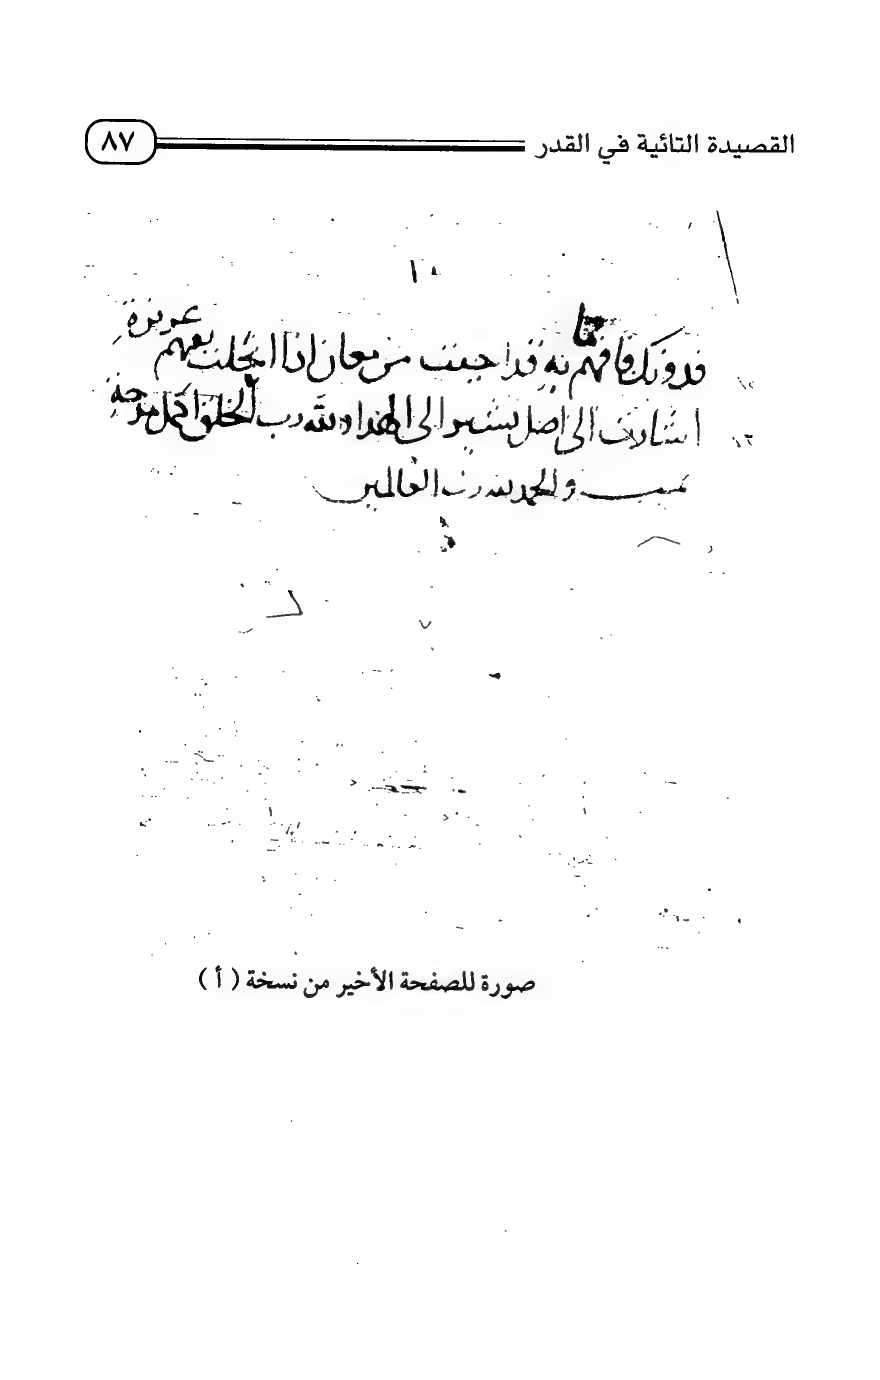 القصيدة التائية في القدر ٨٧
فدونك فافهم به قد اجبت من معان اذا انجلت بفهم عزيزة
اشارت الى اصل يشير الى الهدا ولله رب الخلق اكمل مدحة
تمت والحمد لله رب العالمين
صورة للصفحة الأخير من نسخة ( أ )